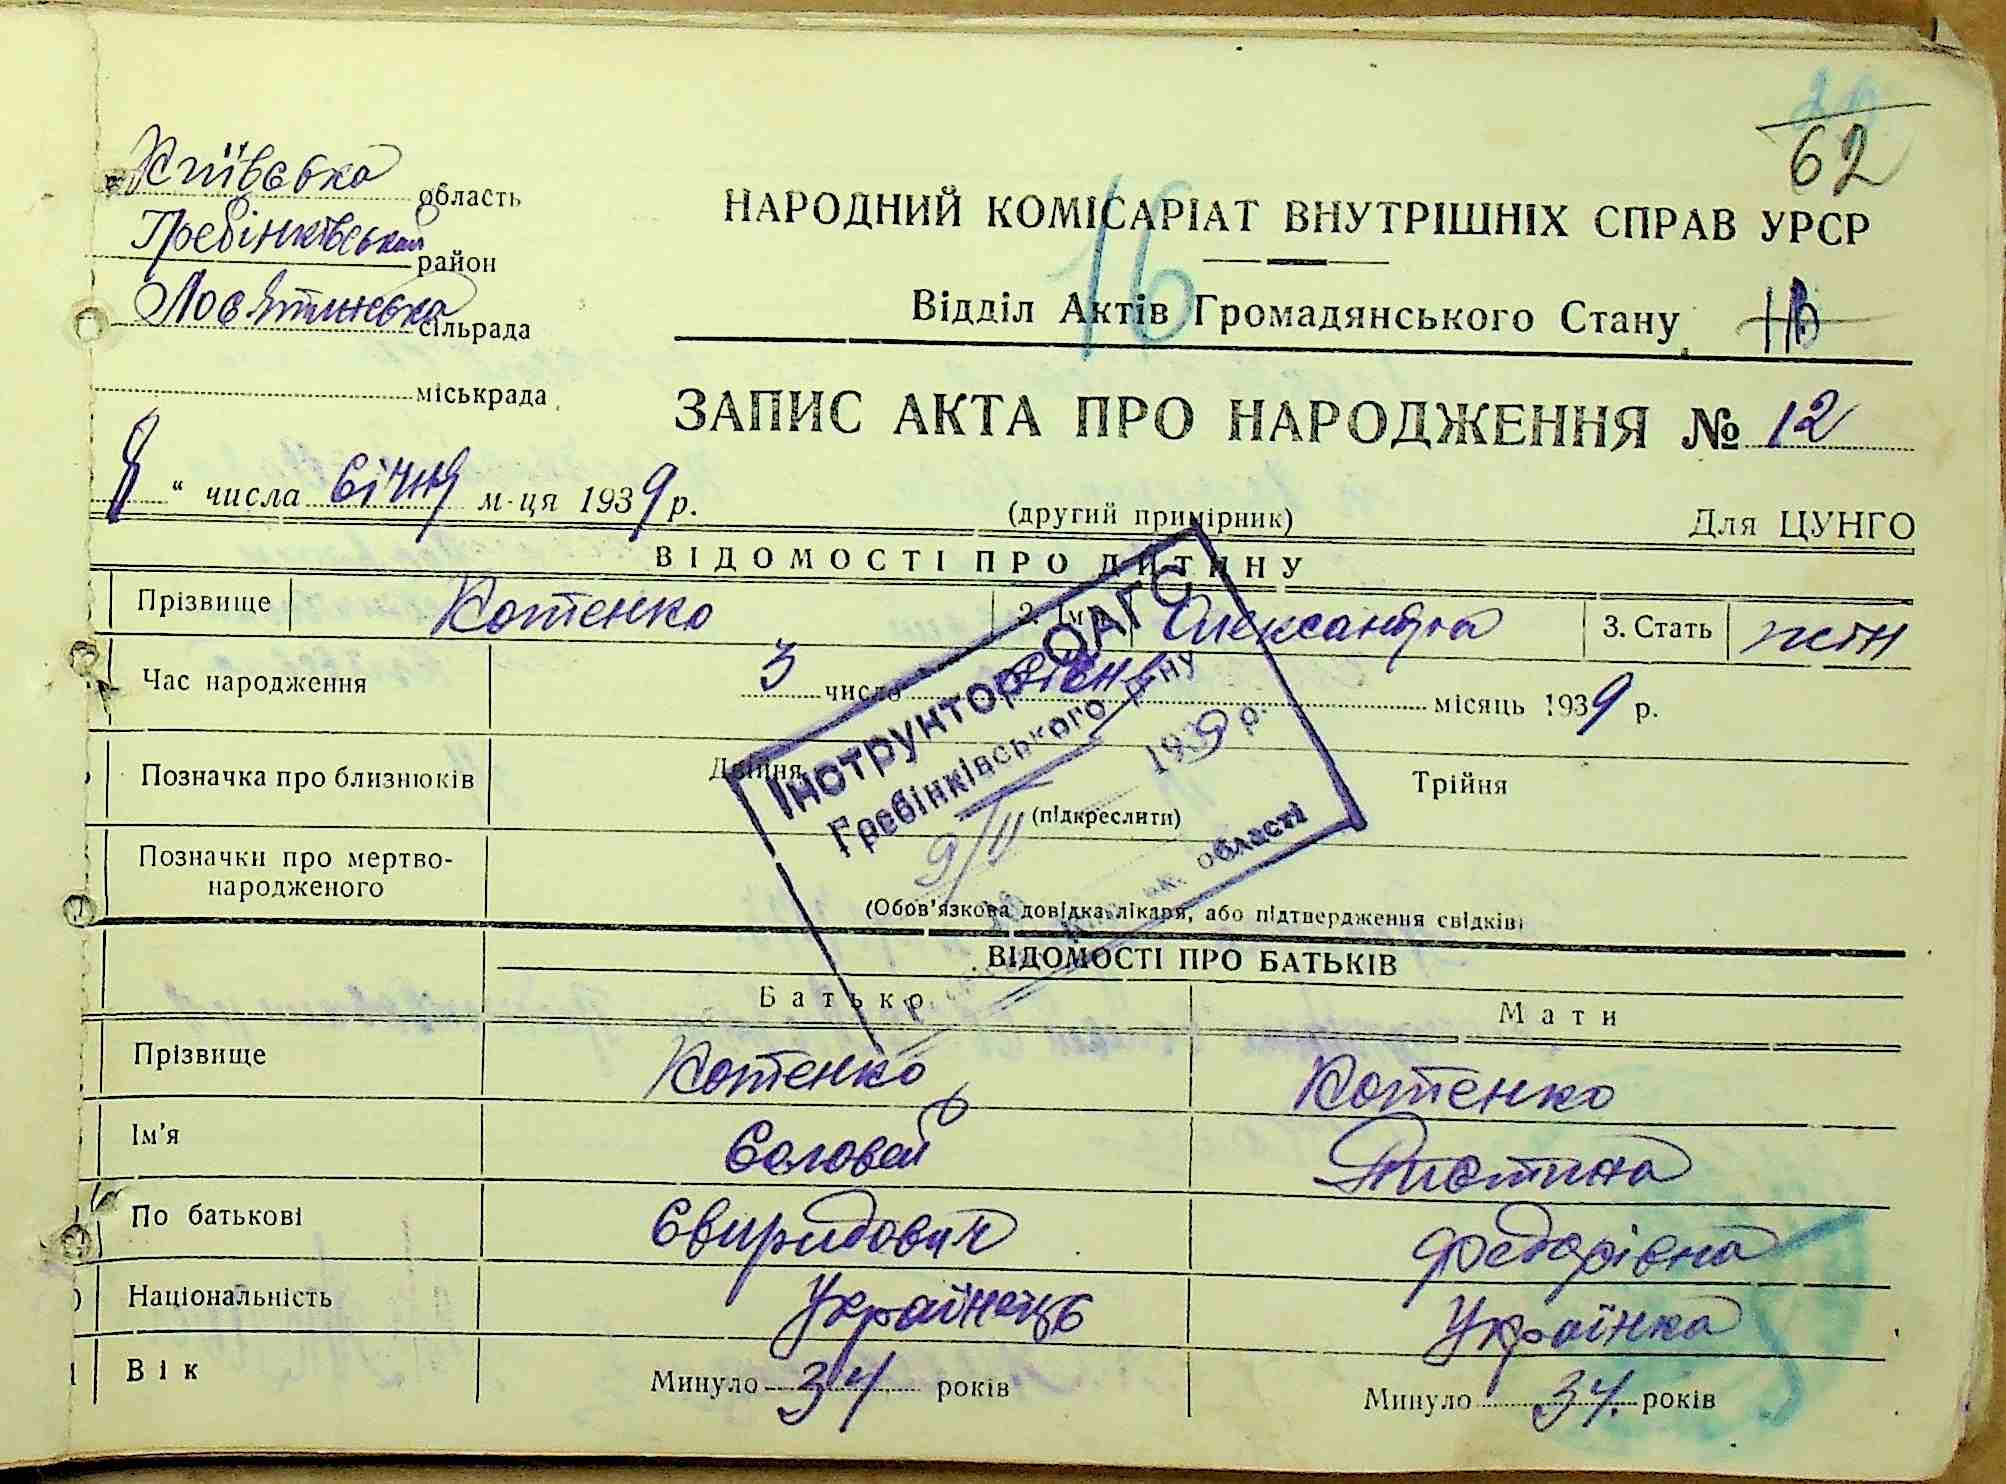 62
Київська область
Гребінківський район
Лосятинська сільрада
міськрада
НАРОДНИЙ КОМІСАРІАТ ВНУТРІШНІХ СПРАВ УРСР
16
Відділ Актів Громадянського Стану
ЗАПИС АКТА ПРО НАРОДЖЕННЯ № 12
8 " числа січня м-ця 1939 р.
(другий примірник)
Для ЦУНГО
ВІДОМОСТІ ПРО ДИТИНУ
Прізвище Котенко 2. Ім'я Олександра 3. Стать жін
Час народження 3 число січня місяць 1939 р.
Позначка про близнюків Двійня Трійня
(підкреслити)
Позначки про мертво-
народженого
(Обов'язкова довідка лікаря, або підтвердження свідків)
Інструктор ОАГС
Гребінківського р-ну
9/II 1939 р.
області
ВІДОМОСТІ ПРО БАТЬКІВ
Батько Мати
Прізвище Котенко Котенко
Ім'я Соловей Христина
По батькові Свиридович Федорівна
Національність Українець Українка
Вік Минуло 34 років Минуло 34. років